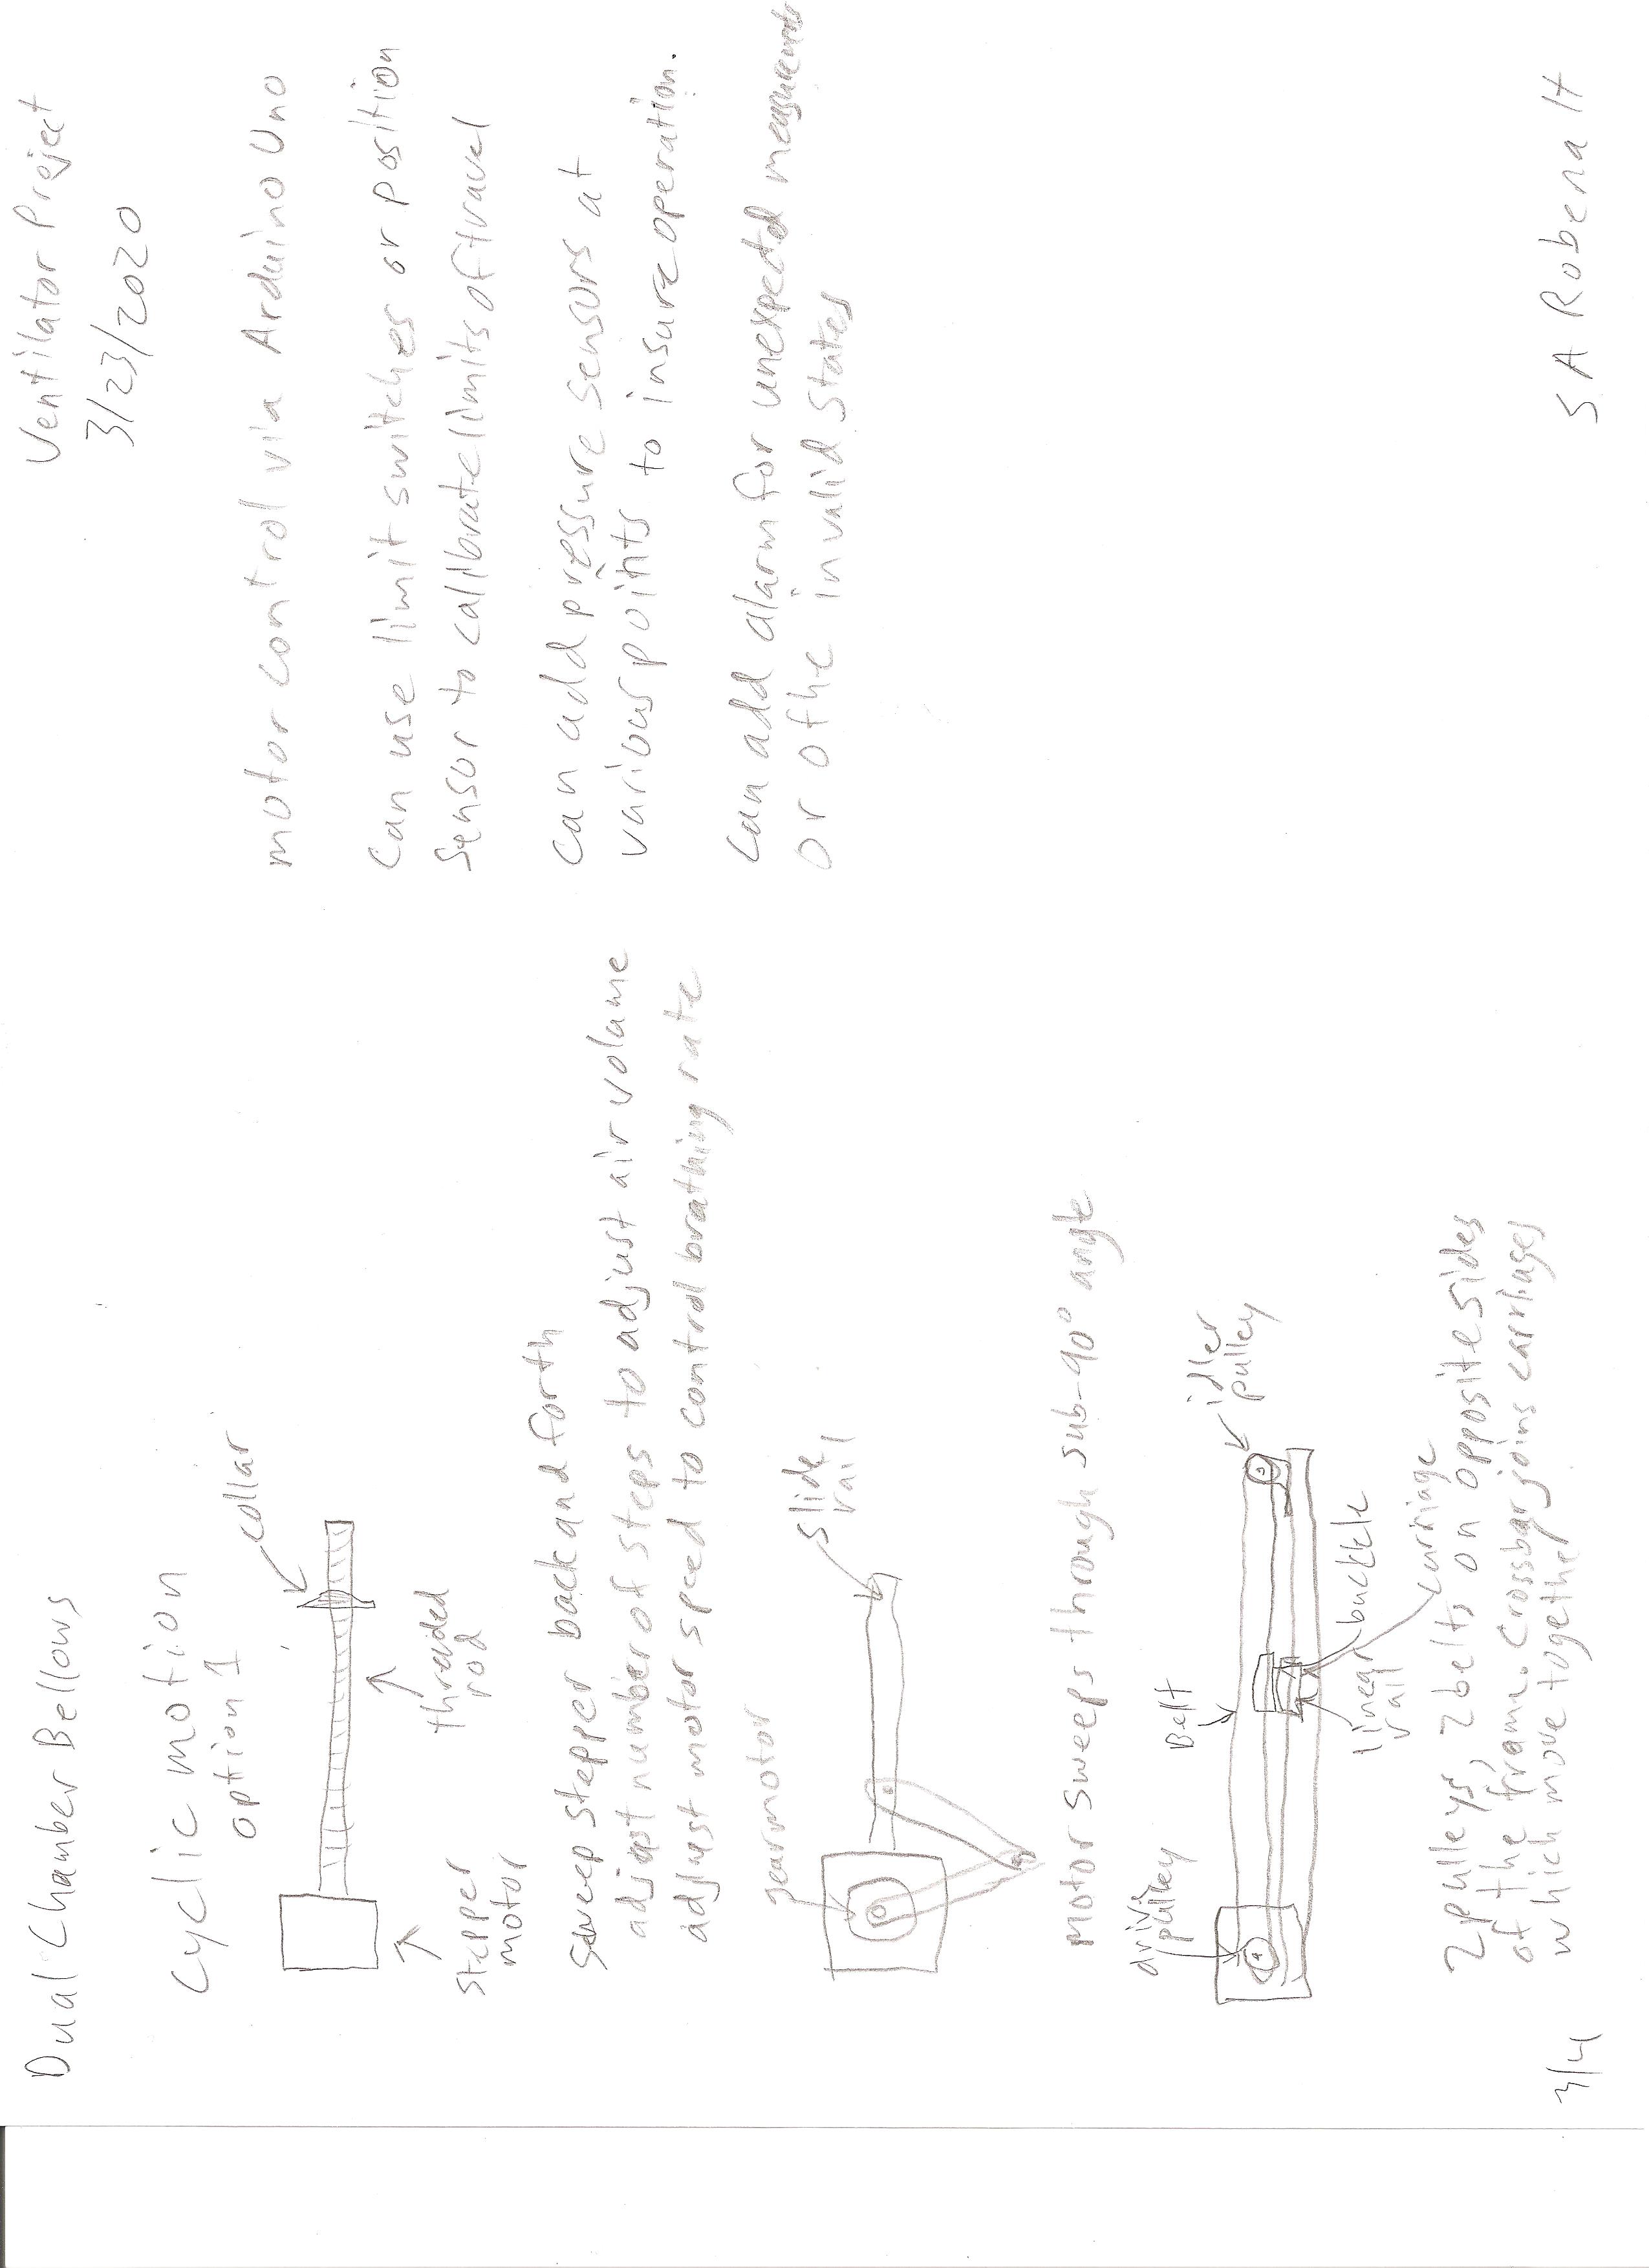 Dual Chamber Bellows
Ventilator Project
3/23/2020
cyclic motion
option 1
collar
threaded
rod
stepper
motor
sweep stepper back and forth
adjust number of steps to adjust air volume
adjust motor speed to control brathing rate
gearmotor
slide
rail
motor sweeps through sub-90° angle
drive
pulley
Belt
idler
pulley
linear
rail
buckle
carriage
2 pulleys, 2 belts on opposite sides
of the frame. Crossbar joins carriages
which move together
motor control via Arduino Uno
can use limit switches or position
sensor to callibrate limits of travel
can add pressure sensors at
various points to insure operation.
can add alarm for unexpected measurements
or othe invalid states
3/4
S A Robena H